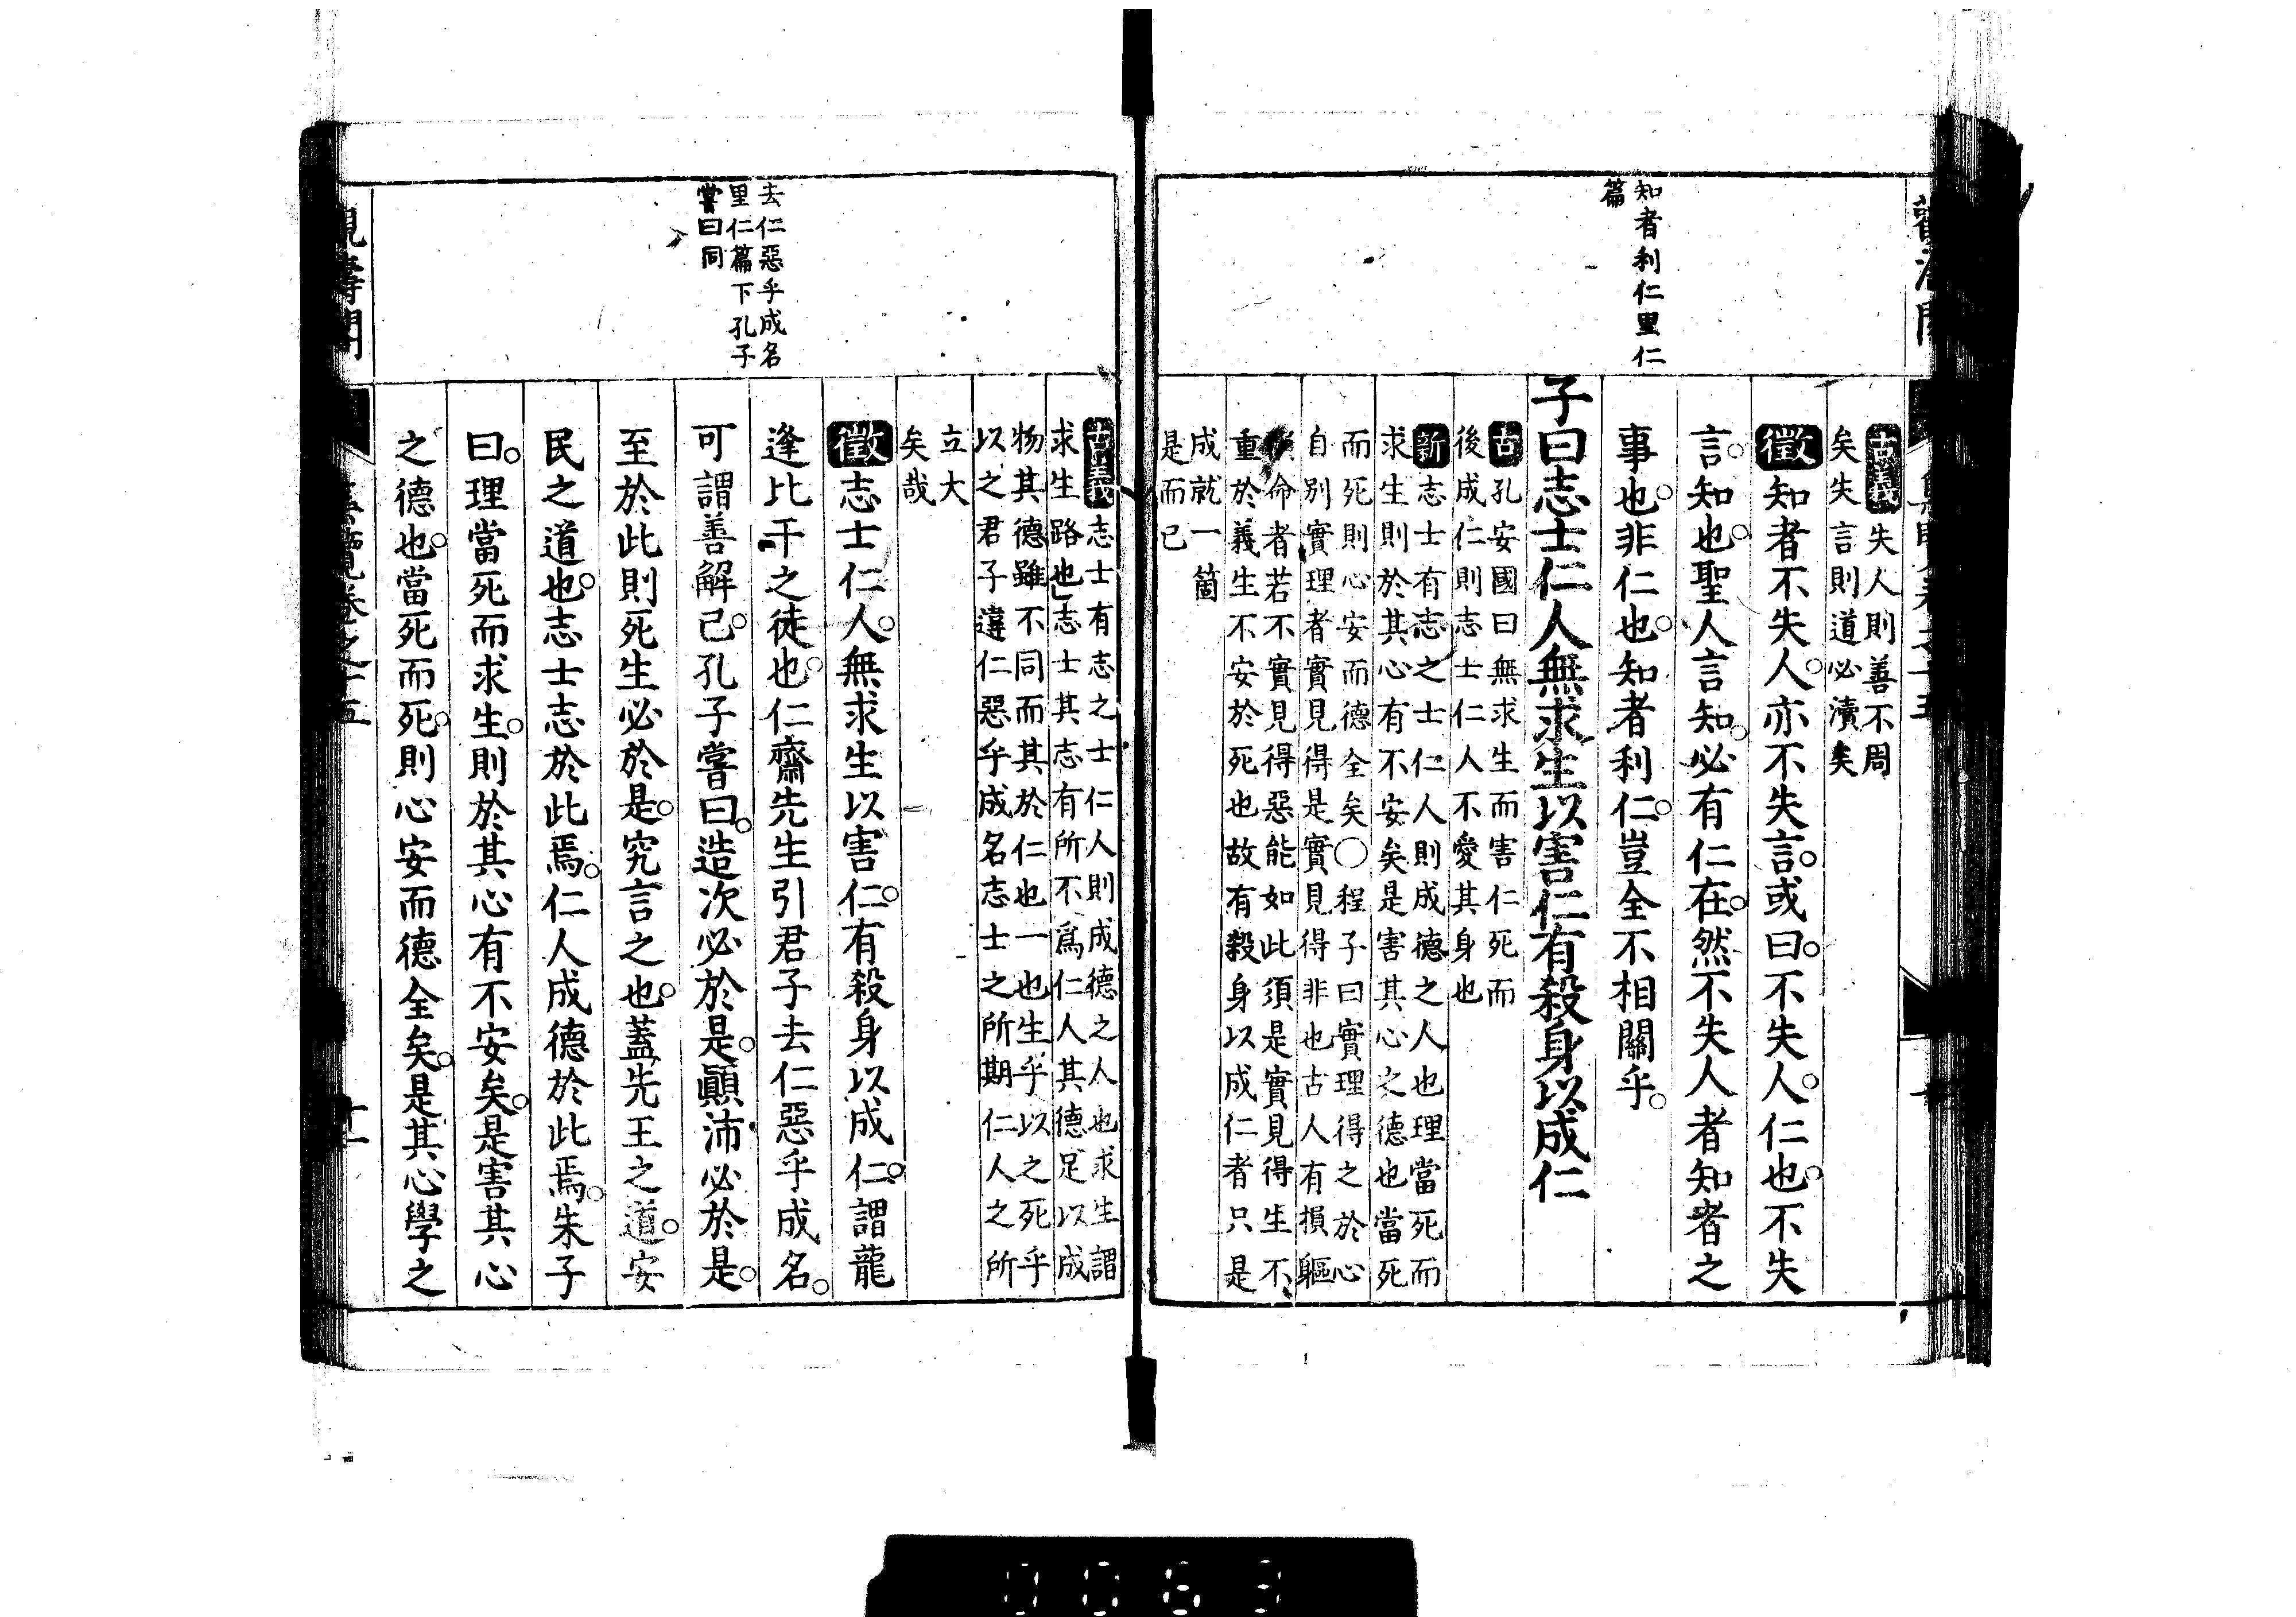 知者利仁里仁
篇
古義失人則善不周
矣失言則道必瀆矣
徵知者不失人。亦不失言。或曰。不失人。仁也。不失
言。知也。聖人言知。必有仁在。然不失人者知者之
事也。非仁也。知者利仁。豈全不相關乎。
子曰志士仁人無求生以害仁有殺身以成仁
古孔安國曰無求生而害仁死而
後成仁則志士仁人不愛其身也
新志士有志之士仁人則成德之人也理當死而
求生則於其心有不安矣是害其心之德也當死
而死則心安而德全矣○程子曰實理得之於心
自別實理者實見得是實見得非也古人有損軀
命者若不實見得惡能如此須是實見得生不
重於義生不安於死也故有殺身以成仁者只是
成就一箇
是而已
去仁惡乎成名
里仁篇下孔子
嘗曰同
古義志士有志之士仁人則成德之人也求生謂
求生路也志士其志有所不爲仁人其德足以成
物其德雖不同而其於仁也一也生乎以之死乎
以之君子違仁惡乎成名志士之所期仁人之所
立大
矣哉
徵志士仁人。無求生以害仁。有殺身以成仁。謂龍
逢比干之徒也。仁齋先生引君子去仁惡乎成名。
可謂善解已。孔子嘗曰。造次必於是。顚沛必於是。
至於此則死生必於是。究言之也。蓋先王之道。安
民之道也。志士志於此焉。仁人成德於此焉。朱子
曰。理當死而求生。則於其心有不安矣。是害其心
之德也。當死而死。則心安而德全矣。是其心學之
覽卷之十五
十一
0063